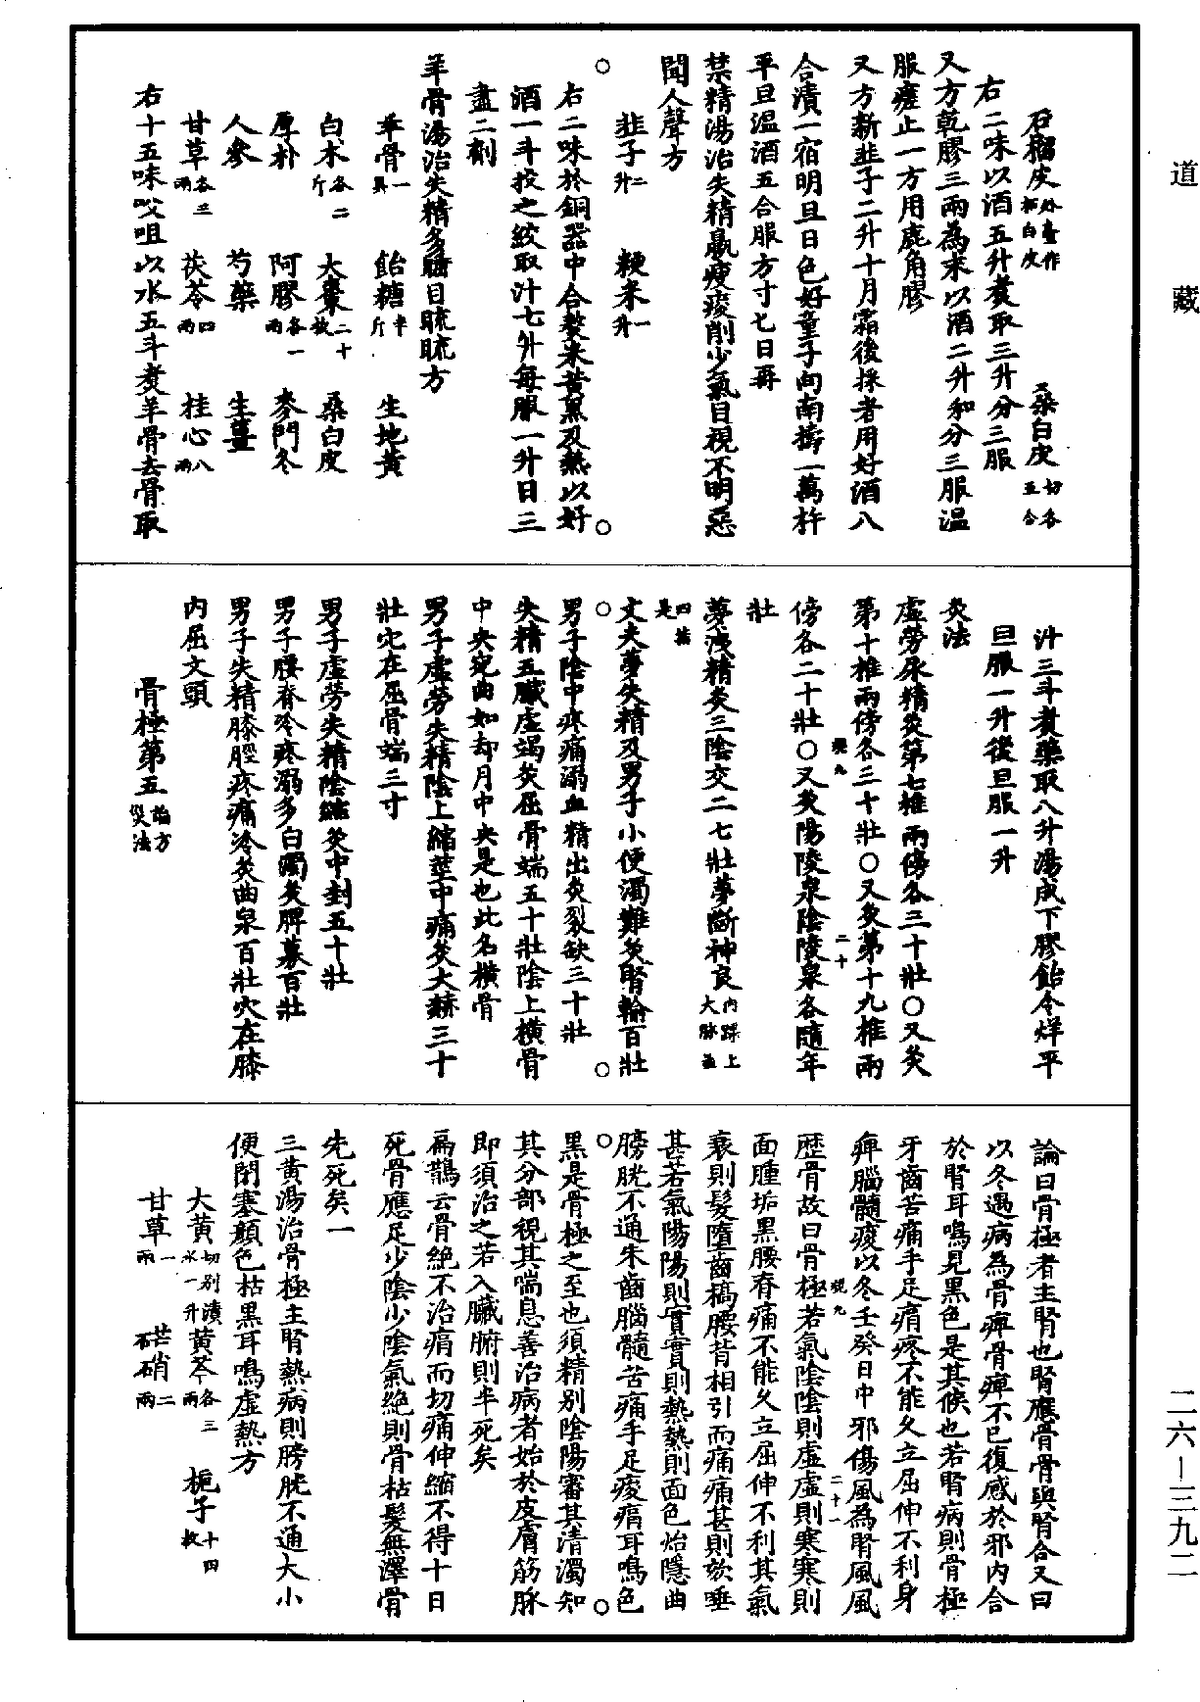 道藏
石榴皮外臺作栢白皮　桑白皮切各五合
右二味以酒五升煮取三升分三服
又方乾膠三兩為末以酒二升和分三服温
服瘥止一方用鹿角膠
又方新韭子二升十月霜後採者用好酒八
合漬一宿明旦日色好童子向南擣一萬杵
平旦温酒五合服方寸匕日再
禁精湯治失精羸瘦痠削少氣目視不明惡
聞人聲方
韭子二升　粳米一升
右二味於銅器中合熬米黃黑及熱以好
酒一斗投之絞取汁七升每服一升日三
盡二劑
羊骨湯治失精多睡目䀮䀮方
羊骨一具　飴糖半斤　生地黃
白术各二斤　大棗二十枚　桑白皮
厚朴　阿膠各一兩　麥門冬
人參　芍藥　生薑
甘草各三兩　茯苓四兩　桂心八兩
右十五味㕮咀以水五斗煮羊骨去骨取
汁三斗煮藥取八升湯成下膠飴令烊平
旦服一升後旦服一升
灸法
虛勞尿精灸第七椎兩傍各三十壯○又灸
第十椎兩傍各三十壯○又灸第十九椎兩
傍各二十壯○又灸陽陵泉陰陵泉各隨年
壯
夢洩精灸三陰交二七壯夢斷神良內踝上大脉並
四指是
丈夫夢失精及男子小便濁難灸腎輸百壯
男子陰中疼痛溺血精出灸裂缺三十壯
失精五臟虛竭灸屈骨端五十壯陰上橫骨
中央宛曲如却月中央是也此名橫骨
男子虛勞失精陰上縮莖中痛灸大赫三十
壯穴在屈骨端三寸
男子虛勞失精陰縮灸中封五十壯
男子腰脊冷疼溺多白濁灸脾募百壯
男子失精膝脛疼痛冷灸曲泉百壯穴在膝
內屈文頭
骨極第五論方灸法
論曰骨極者主腎也腎應骨骨與腎合又曰
以冬遇病為骨痺骨痺不已復感於邪內合
於腎耳鳴見黑色是其候也若腎病則骨極
牙齒苦痛手足痟疼不能久立屈伸不利身
痺腦髓痠以冬壬癸日中邪傷風為腎風風
歷骨故曰骨極若氣陰陰則虛虛則寒寒則
面腫垢黑腰脊痛不能久立屈伸不利其氣
衰則髮墮齒槁腰背相引而痛痛甚則欬唾
甚若氣陽陽則實實則熱熱則面色炲隱曲
膀胱不通朱齒腦髓苦痛手足痠痟耳鳴色
黑是骨極之至也須精別陰陽審其清濁知
其分部視其喘息善治病者始於皮膚筋脉
即須治之若入臟腑則半死矣
扁鵲云骨絕不治痟而切痛伸縮不得十日
死骨應足少陰少陰氣絕則骨枯髮無澤骨
先死矣一
三黃湯治骨極主腎熱病則膀胱不通大小
便閉塞顏色枯黑耳鳴虛熱方
大黃切別漬水一升　黃芩各三兩　梔子十四枚
甘草一兩　芒硝二兩
二六—三九二